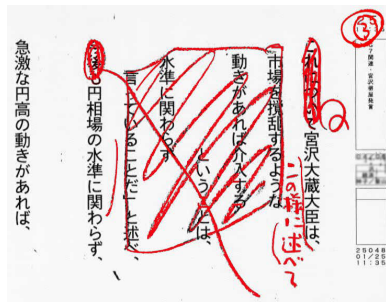 67関連・宮沢蔵相発言
これについて宮沢大蔵大臣は、
この様に述べて
市場を撹乱するような
動きがあれば介入する
ということは、
水準に関わらず
言っていることだ」と述べ、
も円相場の水準に関わらず、
急激な円高の動きがあれば、